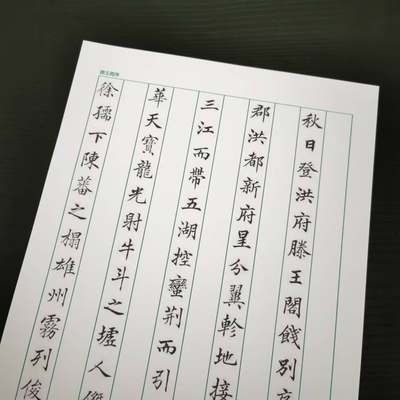 秋日登洪府滕王閣餞別
郡洪都新府星分翼軫地接
三江而帶五湖控蠻荆而引
華天寶龍光射牛斗之墟人傑
徐孺下陳蕃之榻雄州霧列俊